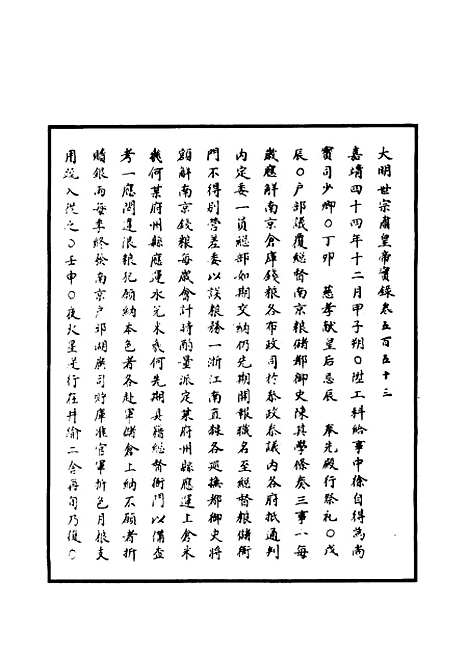 大明世宗肅皇帝實錄卷五百五十三
嘉靖四十四年十二月甲子朔○陞工科給事中徐自得為尚
寶司少卿○丁卯　慈孝獻皇后忌辰　奉先殿行祭禮○戊
辰○戶部議覆總督南京糧儲都御史陳其學條奏三事一每
歲應解南京倉庫錢糧各布政司於參政參議內各府抵通判
內定委一員總部如期交納仍先期開報職名至總督糧儲衙
門不得別營差委以誤糧務一浙江南直錄各巡撫都御史將
額解南京錢糧每歲會計時酌量派定某府州縣應運上倉米
幾何某府州縣應運水兌米幾何先期具籍總督衙門以備查
考一應問違限糧犯願納本色者各赴軍儲倉上納不願者折
贖銀兩每季終發南京戶部湖廣司貯庫准官軍折色月糧支
用混入從之○壬申○夜火星逆行在井踰二舍再旬乃復○